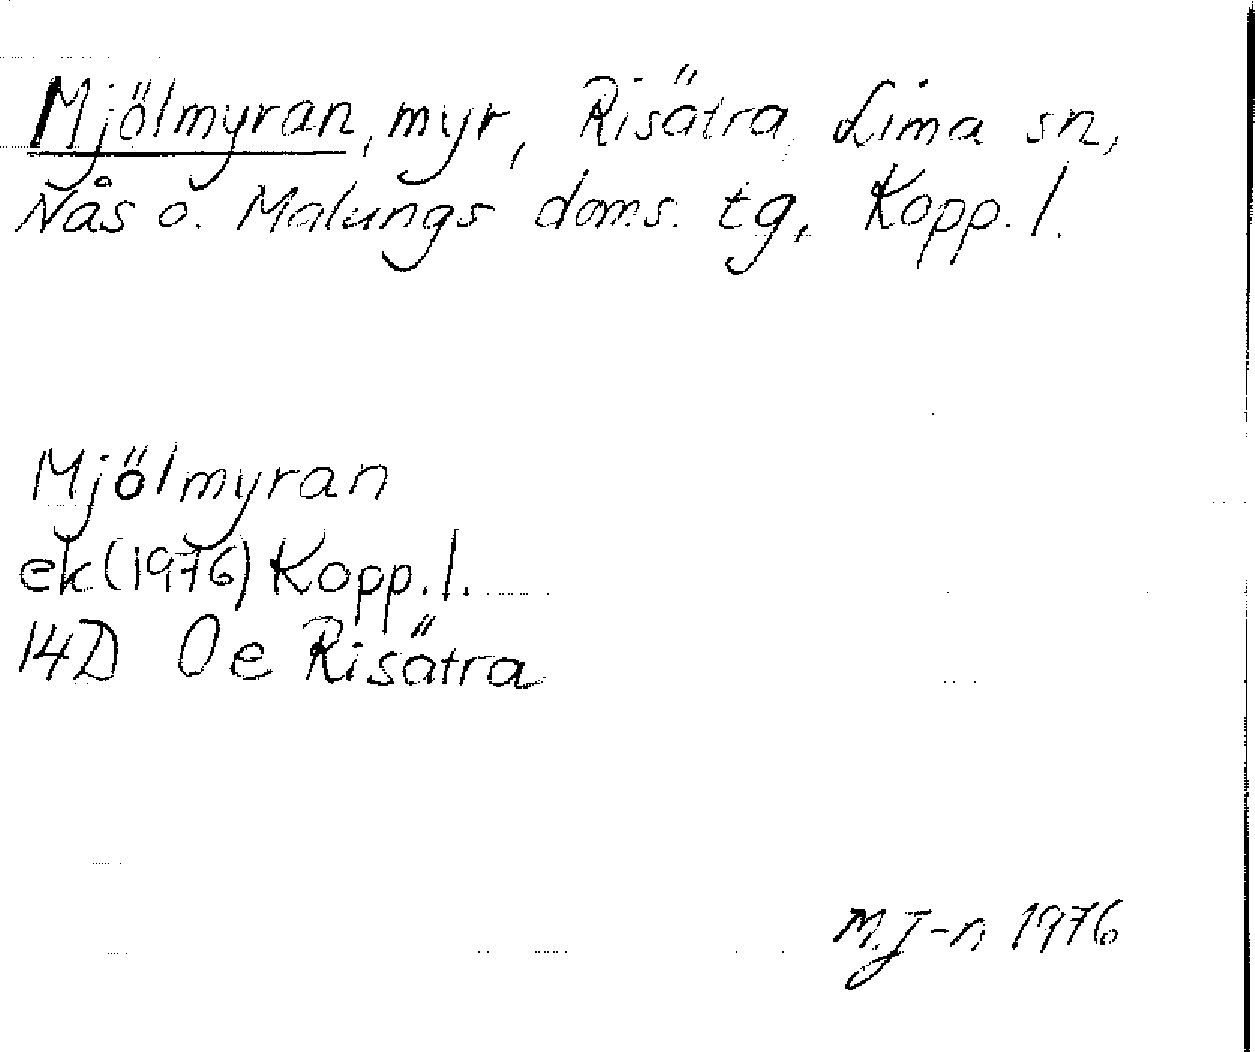 Mjölmyran, myr, Risätra, Lima sn,
Nås o. Malungs doms. tg, Kopp. l.
Mjölmyran
ek (1976) Kopp. l.
14D 0e Risätra
M.J-n 1976